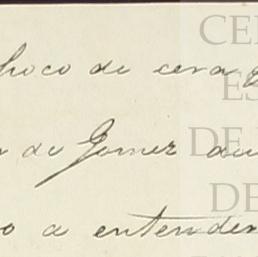 choco de cera
de Gomez
o a entender
CE
ES
DE
DE